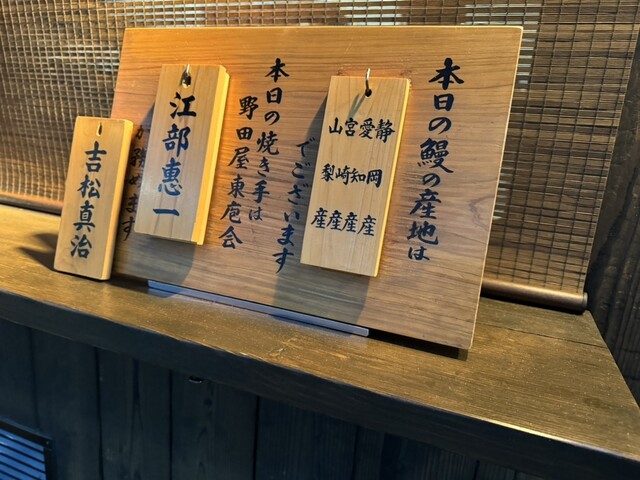 本日の鰻の産地は
静岡産
愛知産
宮崎産
山梨産
でございます
本日の焼き手は
野田屋東庖会
江部惠一
が務めます
吉松真治